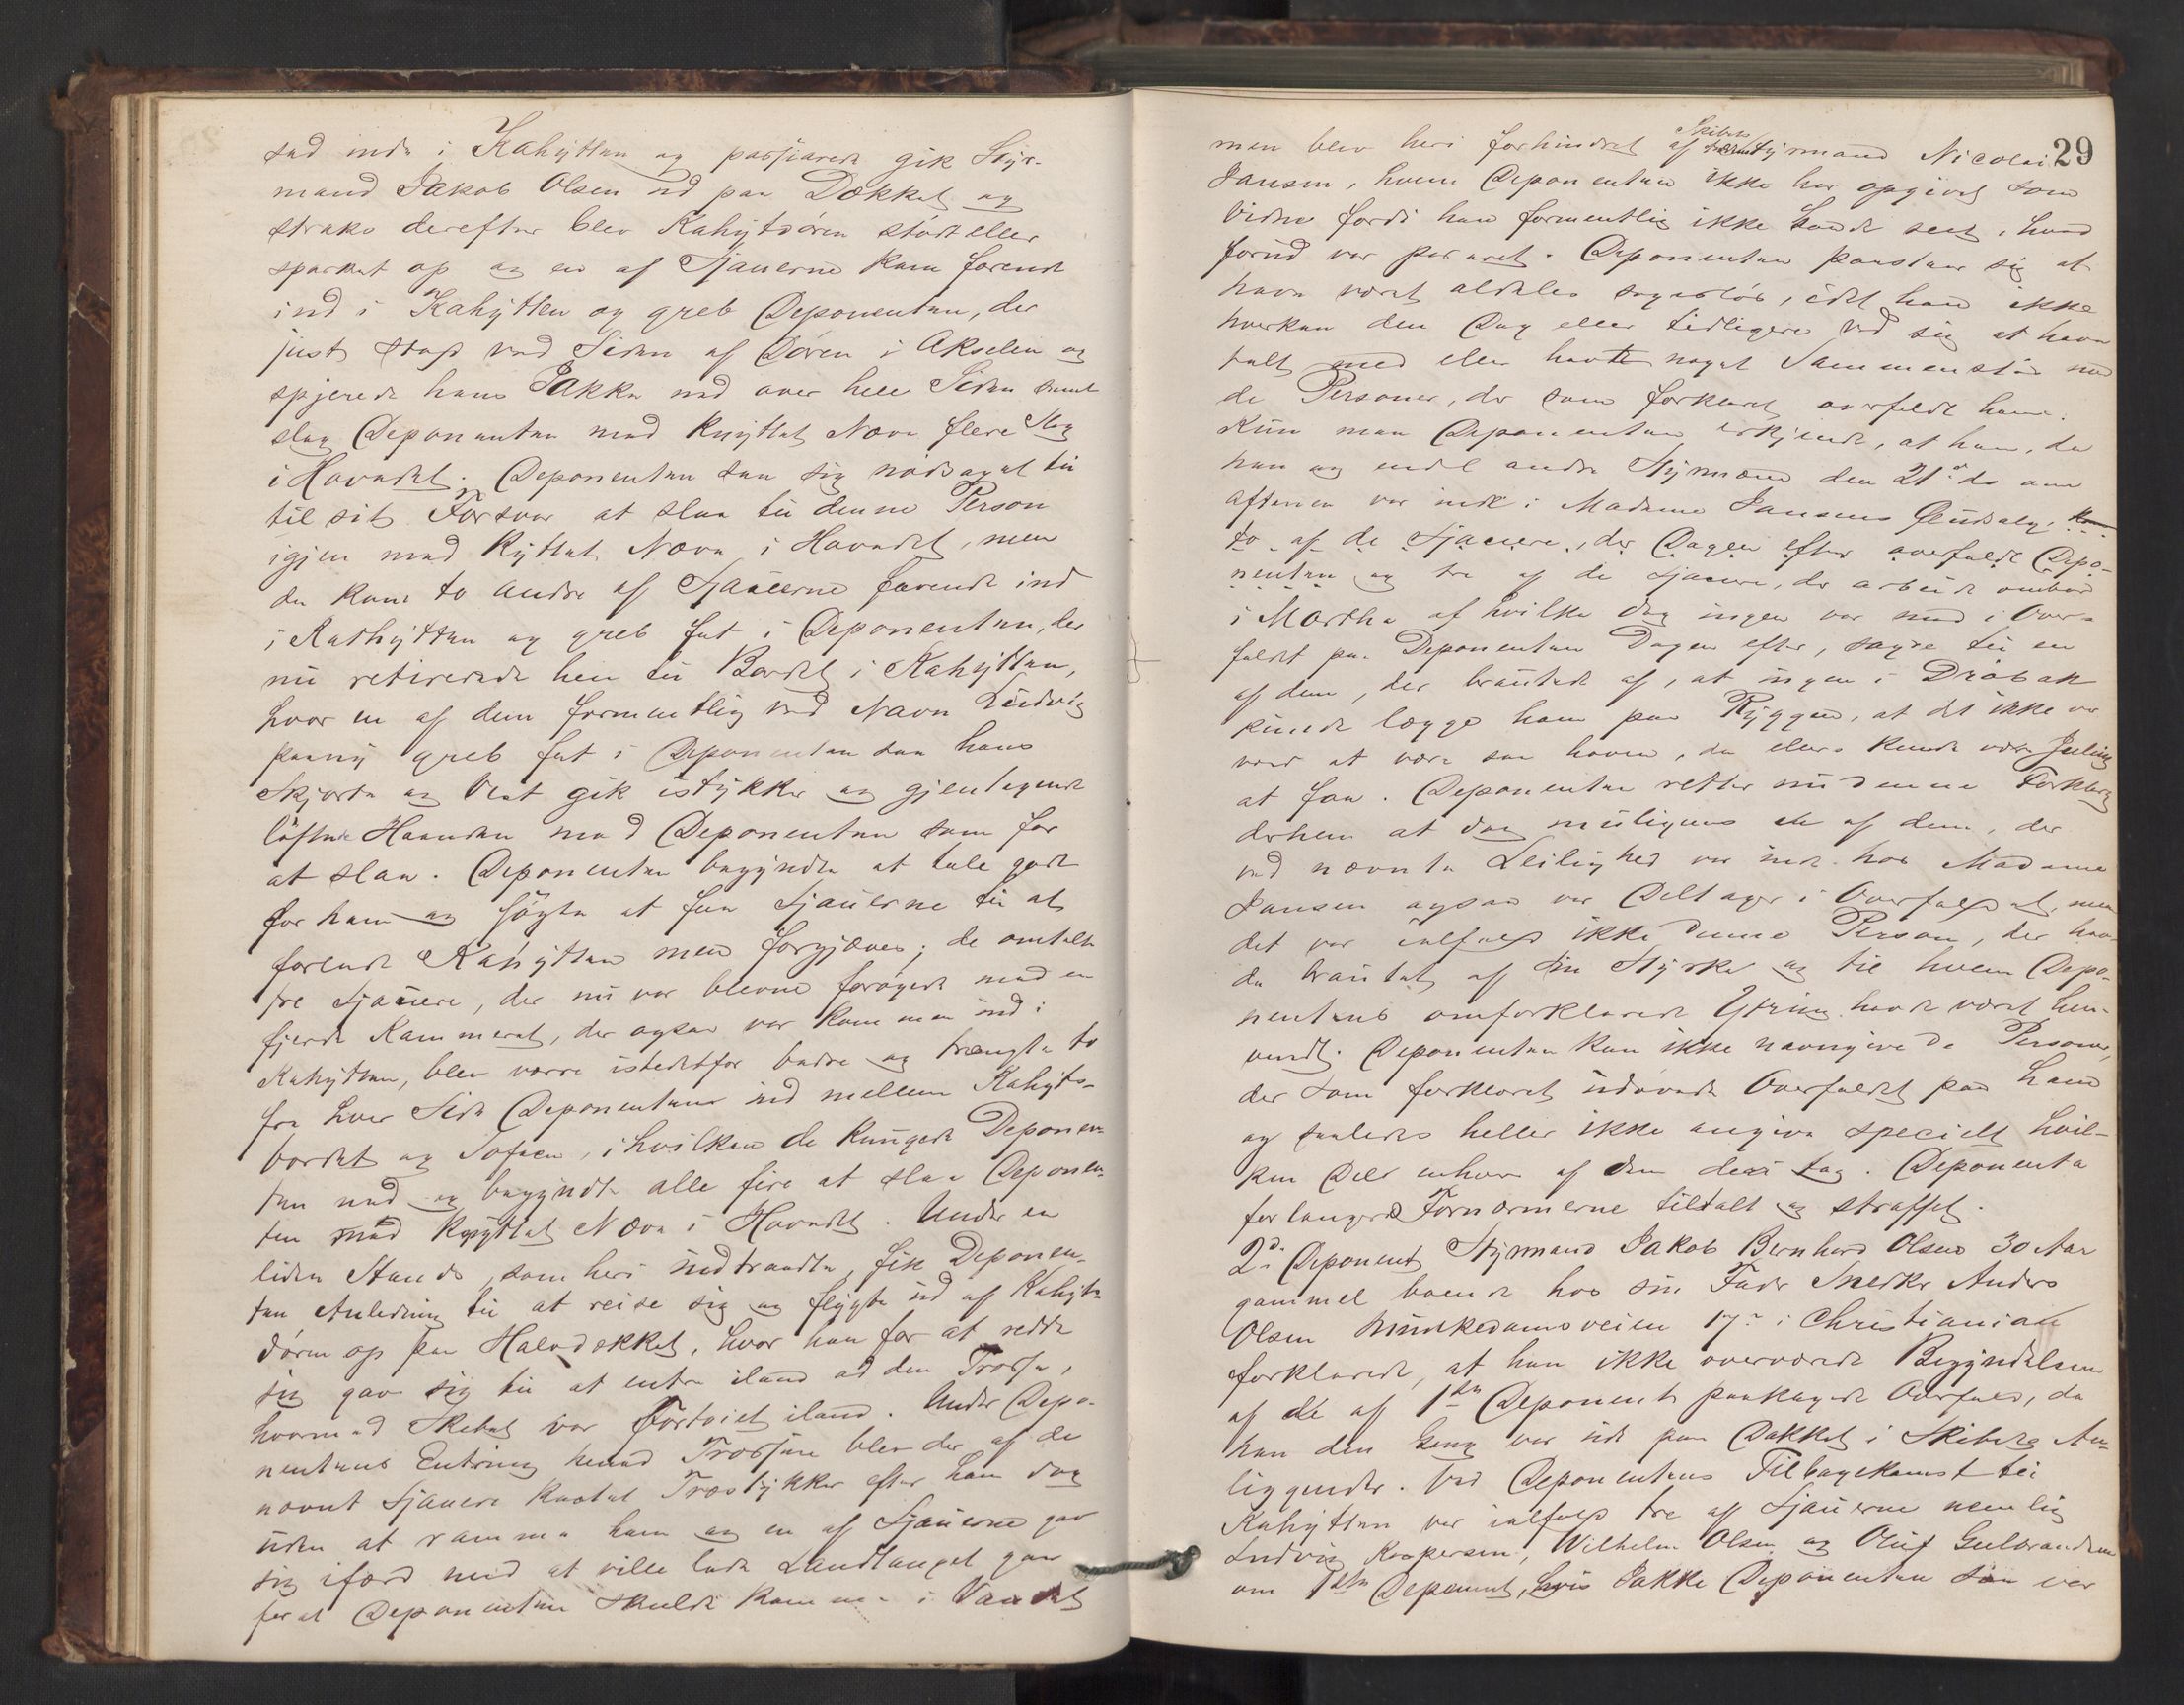 sad inde i Kahytten og passiarede gik Styr-
mand Jakob Olsen ud paa Dækket og
straks derefter blev Kahytsdøren stødt eller
sparket op og en af Sjauerne kom farende
ind i Kahytten og greb Deponenten, der
just stod ved Siden af Døren i Akselen og
spjerede hans Jakke ned over hele Siden samt
slog Deponenten med knyttet Næve flere Slag
i Hovedet. Deponenten saa sig nødsaget til
til sit Forsvar at slaa til denne Person
igjen med knyttet Næve i Hovedet, men
da kom to andre af Sjauerne farende ind
i Kathytten og greb fat i Deponenten, der
nu retirerede hen til Bordet i Kahytten,
hvor en af dem formentlig ved Navn Ludvig
paany greb fat i Deponenten saa hans
Skjorte og Vest gik istykker og gjentagende
løftede Haanden mod Deponenten som for
at slaa. Deponenten begyndte at tale godt
for ham og søgte at faa Sjauerne til at
forlade Kahytten men forgjæves; de omtalte
tre Sjauere, der nu var blevne forøgede med en
fjerde Kammerat, der ogsaa var kommen ind i
Kahytten, blev værre istedetfor bedre og trængte to
fra hver Side Deponenten ind mellem Kahyts-
bordet og Sofaen, i hvilken de kungede Deponen-
ten ned og begyndte alle fire at slaa Deponen-
ten med knyttet Næve i Hovedet. Under en
liden Stands, som heri indtraadte, fik Deponen-
ten Anledning til at reise sig og flygte ud af Kahyts-
døren op paa Halvdækket, hvor han for at redde
sig gav sig til at entre iland ad den Trosse,
hvormed Skibet var fortøiet iland. Under Depo-
nentens Entring henad Trossen blev der af de
nævnt Sjauere kastet Træstykker efter ham dog
uden at ramme ham og en af Sjauerne gav
sig ifærd med at ville lade Landtauget gaa
for at Deponenten skulde komme i Vandet
29
men blev heri forhindret af Skibets Styrmand Nicolai
Jansen, hvem Deponenten ikke har opgivet som
Vidne fordi han formentlig ikke havde seet, hvad
forud var passeret. Deponenten paastaar sig at
have været aldeles sagesløs, idet han ikke
hverken den Dag eller tidligere ved sig at have
talt med eller havt noget Sammenstød med
de Personer, der som forklaret overfaldt ham.
Kun maa Deponenten erkjende, at han, da
han og endel andre Styrmænd den 21de ds om
aftenen var inde i Madame Jansens Øludsalg,
to af de Sjauere, der Dagen efter overfaldt Depo-
nenten og tre af de Sjauere, der arbeide ombord
i Martha af hvilke dog ingen var med i Over-
faldet paa Deponenten Dagen efter, sagde til en
af dem, der brautede af, at ingen i Drøbak
kunde lægge ham paa Ryggen, at det ikke var
værd at være saa hoven, da ellers kunde være Juling
at faa. Deponenten retter nu denne Forklaring
derhen at dog muligens en af dem, der
ved nævnte Leilighed var inde hos Madame
Jansen ogsaa var Deltager i Overfaldet, men
det var ialfald ikke denne Person, der hav-
de brautet af sin Styrke og til hvem Depo-
nentens omforklarede Ytring havde været hen-
vendt. Deponenten kan ikke navngive de Personer,
der som forklaret udøvede Overfaldet paa ham
og saaledes heller ikke angive specielt hvil-
ken Del enhver af dem deri tog. Deponenten
forlangede Fornærmerne tiltalt og straffet.
2d. Deponent Styrmand Jakob Bernhard Olsen 30 Aar
gammel boende hos sin Fader Snedker Anders
Olsen Munkedamsveien 17 i Christiania
forklarede, at han ikke overværede Begyndelsen
af de af 1ste Deponent paaklagede Overfald, da
han den Gang var ude paa Dækket i Skibets An-
liggender. Ved Deponentens Tilbagekomst til
Kahytten var ialfald tre af Sjauerne nemlig
Ludvig Kaspersen, Wilhelm Olsen og Oluf Gulbrandsen
om 1ste Deponent, hvis Jakke Deponenten saa var